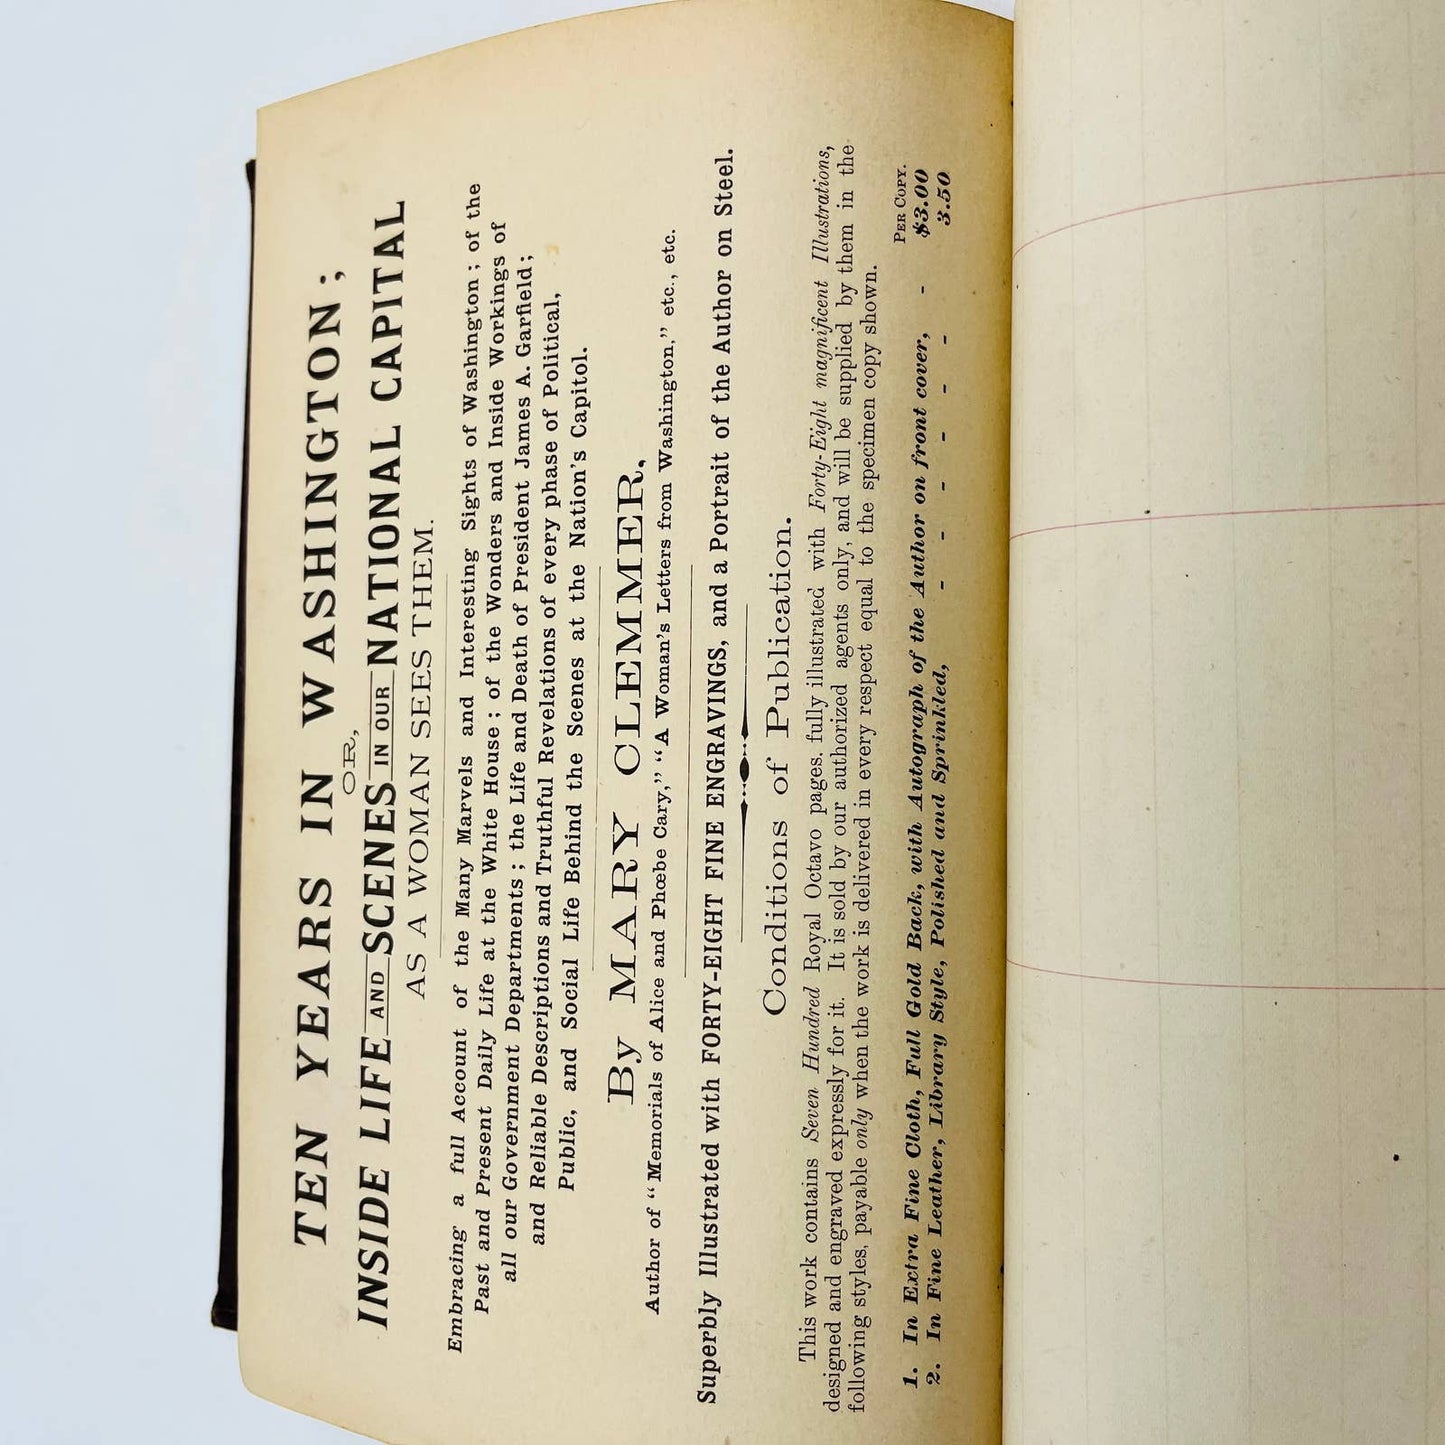 TEN YEARS IN WASHINGTON;
OR,
INSIDE LIFE AND SCENES IN OUR NATIONAL CAPITAL
AS A WOMAN SEES THEM.
Embracing a full Account of the Many Marvels and Interesting Sights of Washington; of the
Past and Present Daily Life at the White House; of the Wonders and Inside Workings of
all our Government Departments; the Life and Death of President James A. Garfield;
and Reliable Descriptions and Truthful Revelations of every phase of Political,
Public, and Social Life Behind the Scenes at the Nation's Capitol.
By MARY CLEMMER,
Author of "Memorials of Alice and Phœbe Cary," "A Woman's Letters from Washington," etc., etc.
Superbly Illustrated with FORTY-EIGHT FINE ENGRAVINGS, and a Portrait of the Author on Steel.
Conditions of Publication.
This work contains Seven Hundred Royal Octavo pages, fully illustrated with Forty-Eight magnificent Illustrations,
designed and engraved expressly for it. It is sold by our authorized agents only, and will be supplied by them in the
following styles, payable only when the work is delivered in every respect equal to the specimen copy shown.
PER COPY.
1. In Extra Fine Cloth, Full Gold Back, with Autograph of the Author on front cover, - $3.00
2. In Fine Leather, Library Style, Polished and Sprinkled, - - - - - - 3.50